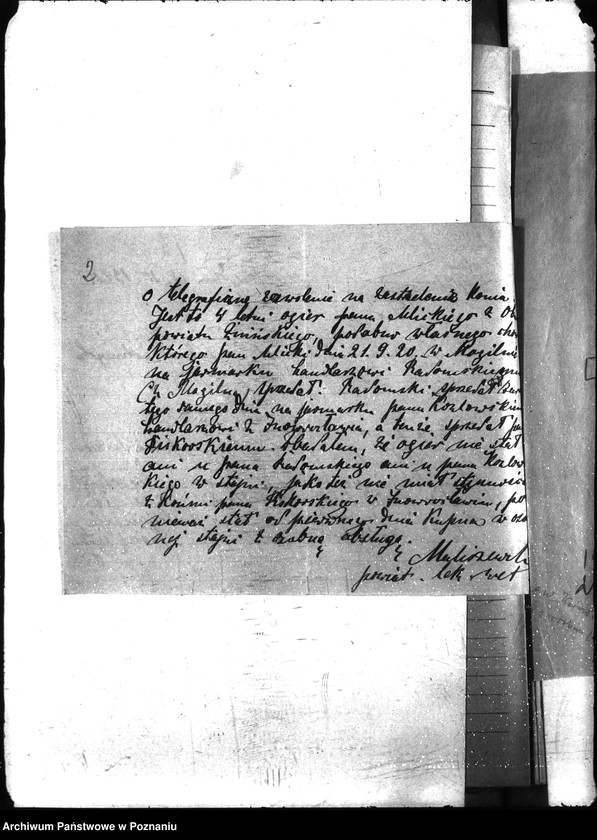 2
o telegraficzne zezwolenie na zastrzelenie konia.
Jest to 4 letni ogier pana Mlickiego z
powiatu żnińskiego, własnego
którego pan Mlicki dnia 21.9.20. w Mogilnie
na jarmarku handlarzowi Radomskiemu
z Mogilna, sprzedał. Radomski sprzedał
tego samego dnia na jarmarku panu Kozłowskiemu
handlarzowi z Inowrocławia, a tenże sprzedał
Piskorskiemu. Zbadałem, że ogier nie stał
ani u pana Radomskiego ani u pana Kozłow
kiego w stajni, jako też nie miał styczności
z końmi pana Piskorskiego w Inowrocławiu, po
nieważ stał od pierwszego dnia kupna w oso
nej stajni z osobną obsługą.
Maliszewsk
powiat. lek. wet
Archiwum Państwowe w Poznaniu